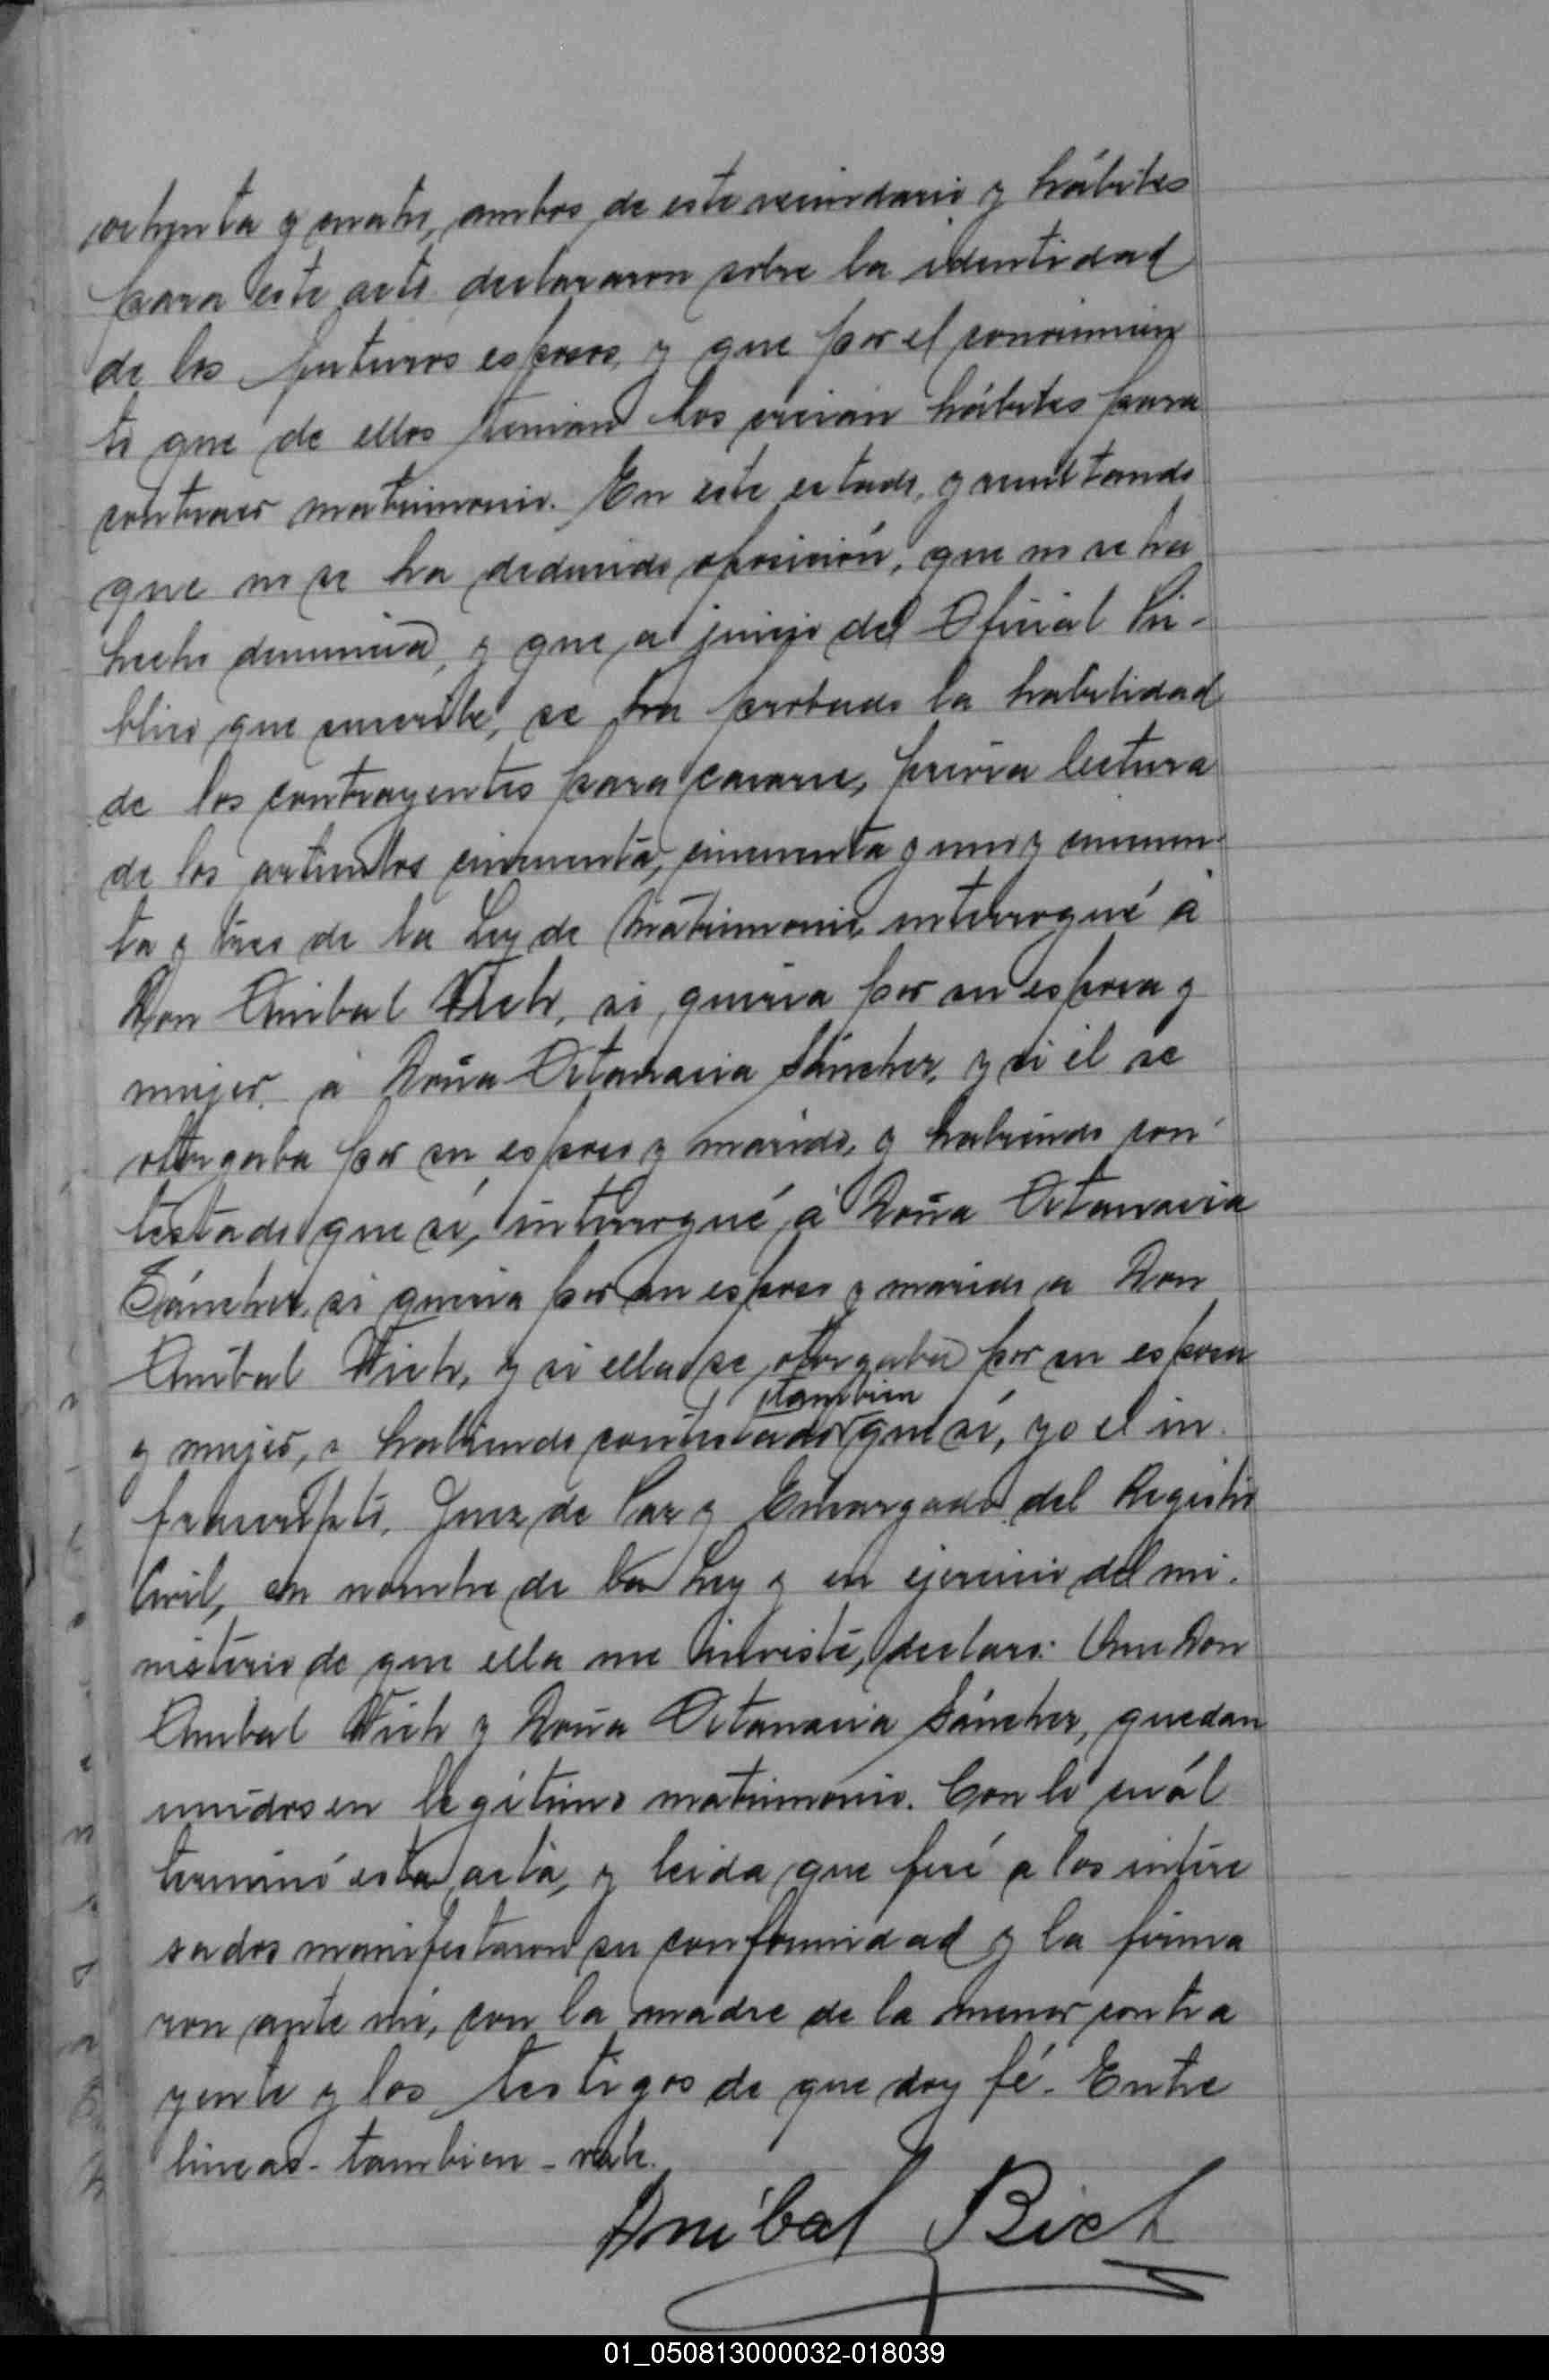 ochenta y cuatro, ambos de este vecindario y hábiles
para este acto declararon sobre la identidad
de los futuros esposos, y que por el conocimien
to que de ellos tenian los creian hábiles para
contraer matrimonio. En este estado, y resultando
que no se ha deducido oposición, que no se ha
hecho denuncia, y que a juicio del Oficial Pú-
blico que suscribe, se ha probado la habilidad
de los contrayentes para casarse, previa lectura
de los articulos cincuenta, cincuenta y uno y cincuen
ta y tres de la Ley de Matrimonio, interrogué á
Don Anibal Vich, si, queria por su esposa y
mujer, a Doña Octanacia Sáncher, y si él se
otorgaba por su esposo y marido, y habiendo con-
testado que sí, interrogué á Doña Octanacia
Sáncher, si queria por su esposo y marido a Don
Anibal Vich, y si ella se otorgaba por su esposa
también
y mujer, y habiendo contestado que sí, yo el in-
frascripto, Juez de Paz y Encargado del Registro
Civil, en nombre de la Ley y en ejercicio del mi-
nisterio de que ella me inviste, declaro: Que Don
Anibal Vich y Doña Octanacia Sáncher, quedan
unidos en legítimo matrimonio. Con lo cuál
terminó esta acta, y leida que fué a los intere
sados manifestaron su conformidad y la firma
ron ante mí, con la madre de la menor contra
yente y los testigos de que doy fé. Entre
lineas - tambien - vale.
Aníbal Bich
01_050813000032-018039